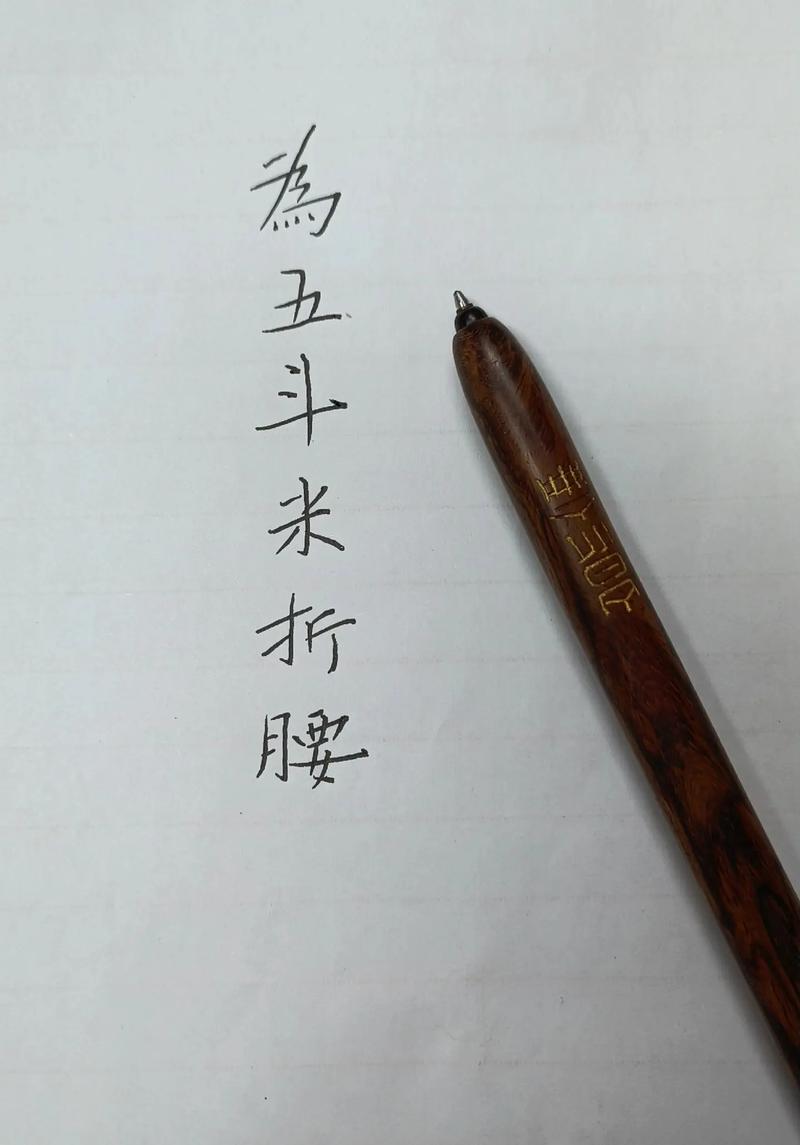 為五斗米折腰